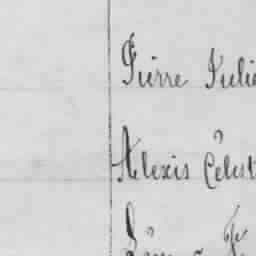 Pierre Julie
Alexis Celest